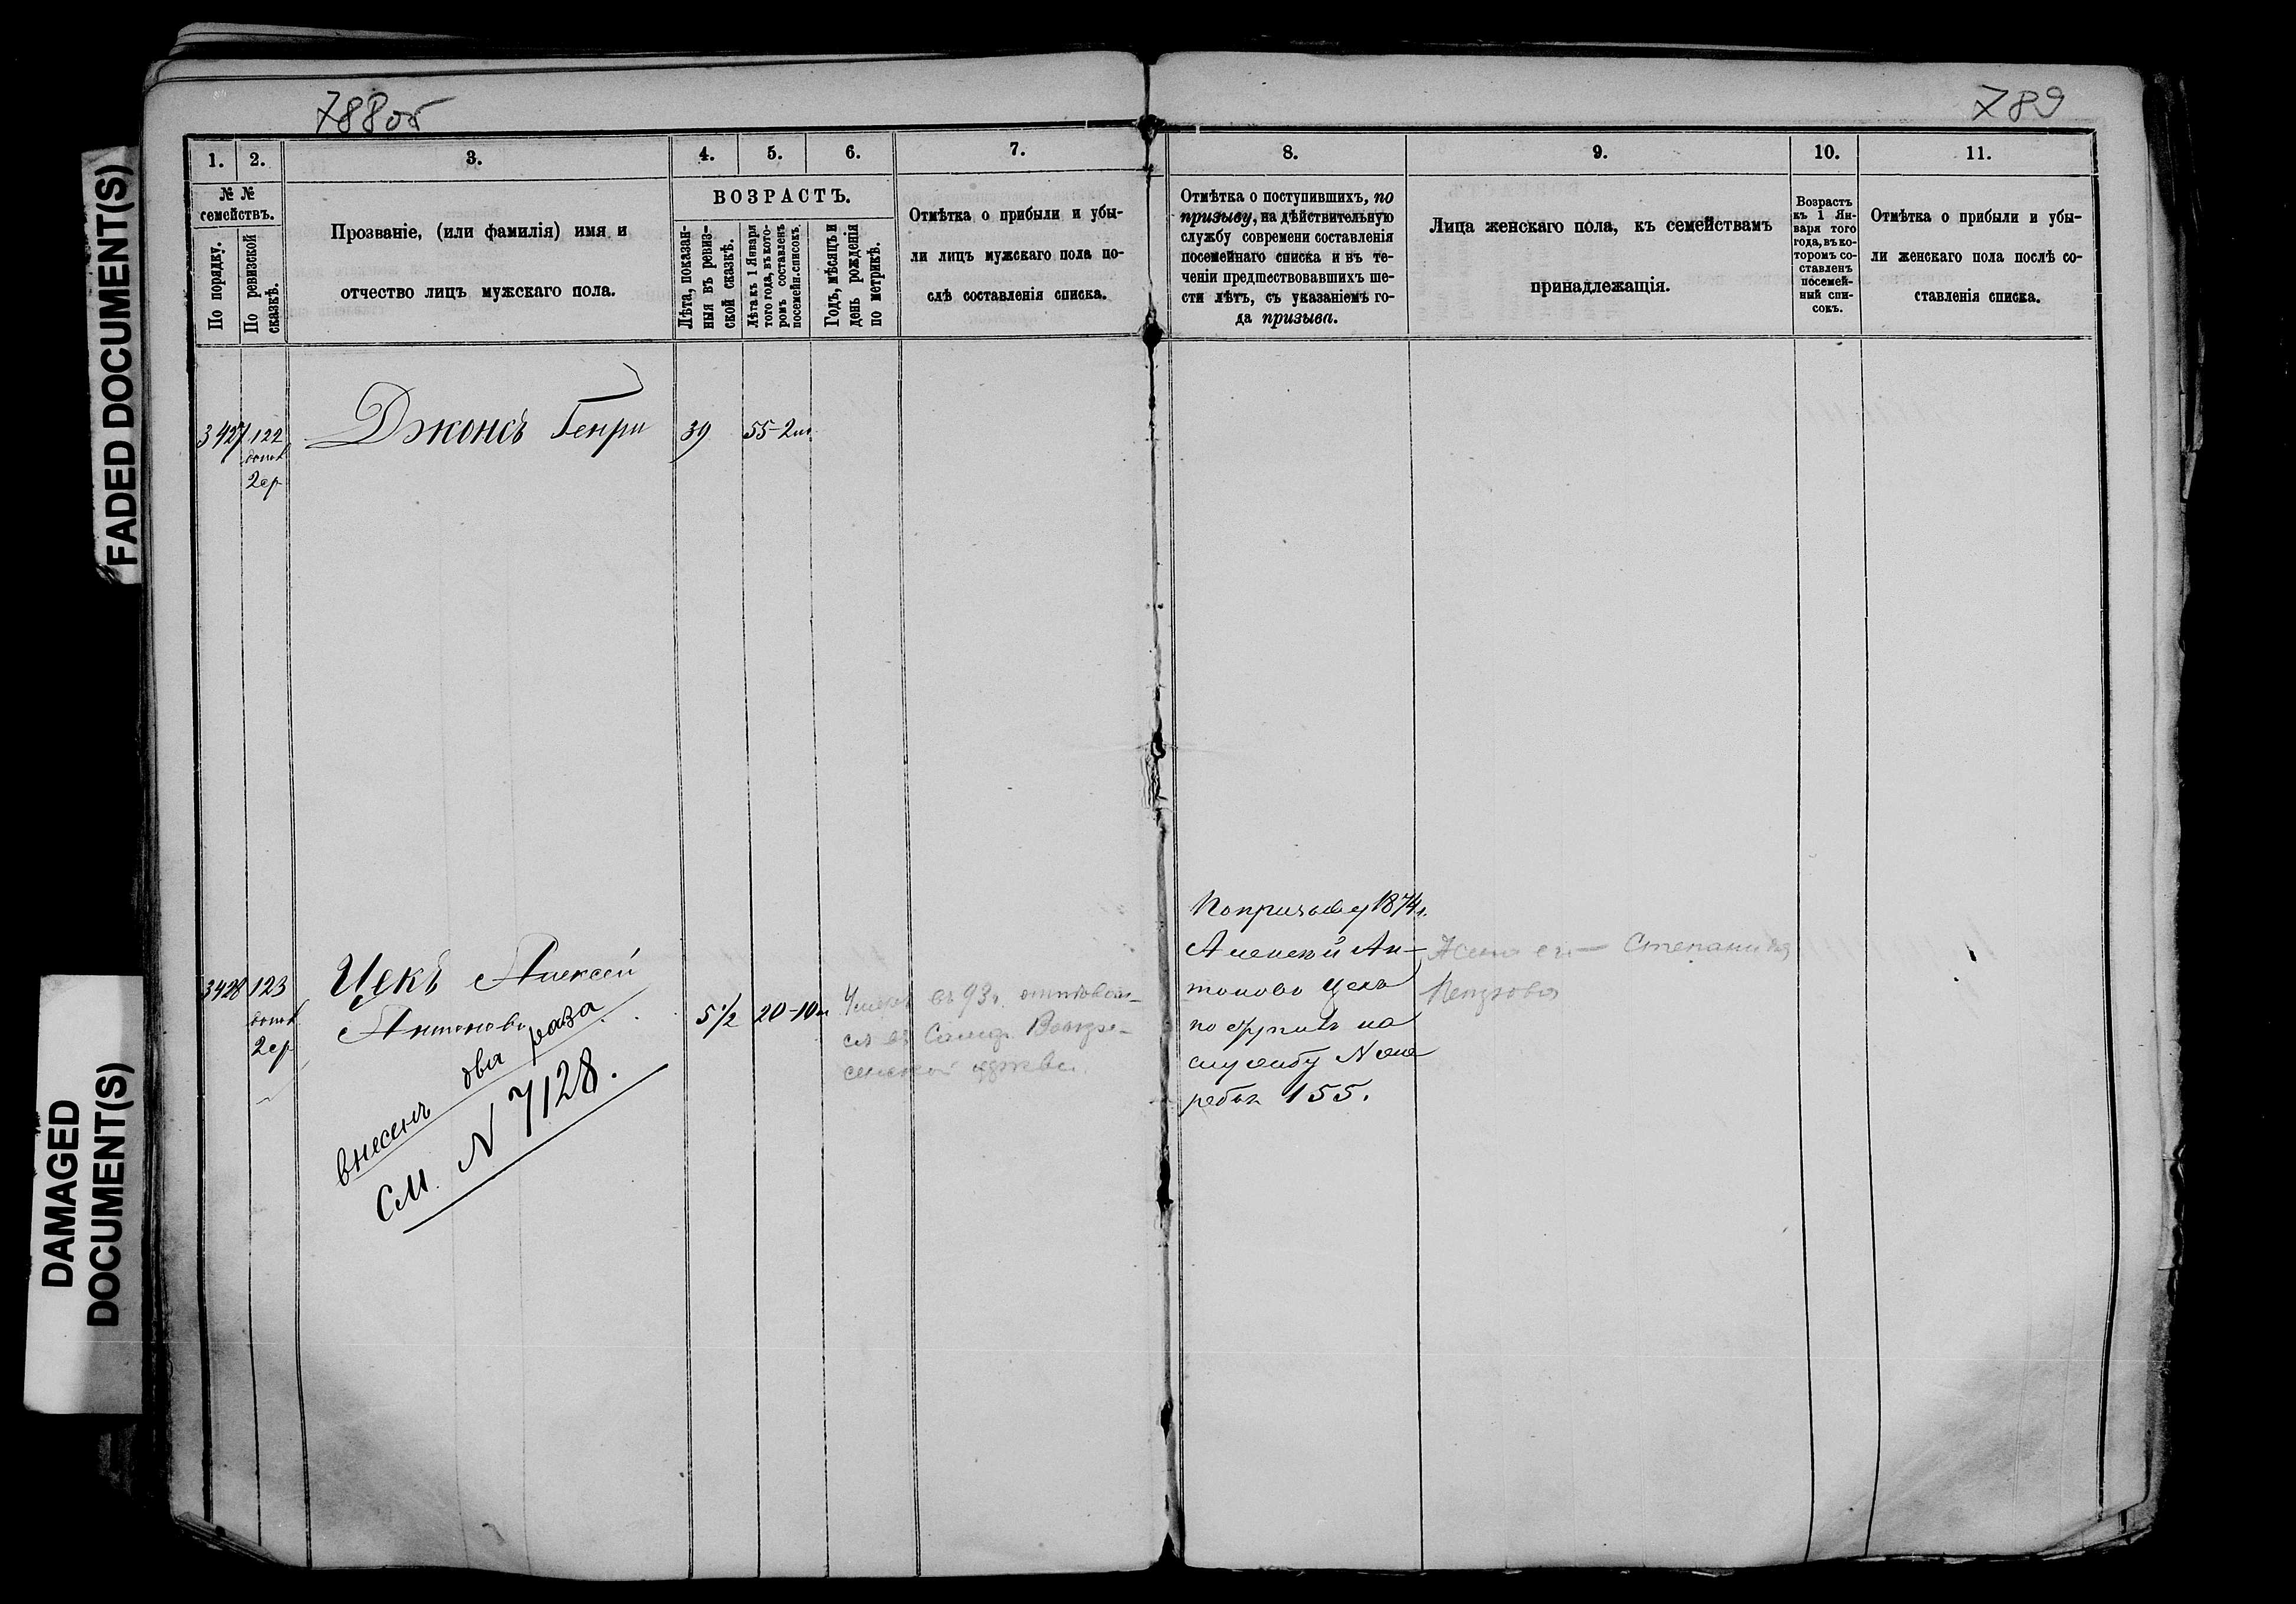 788об
789
FADED DOCUMENT(S)
DAMAGED
DOCUMENT(S)
1.
2.
3.
4.
5.
6.
7.
8.
9.
10.
11.
№ №
семействъ.
По порядку.
По ревизской
сказкѣ.
Прозваніе, (или фамилія) имя и
отчество лицъ мужскаго пола.
ВОЗРАСТЪ.
Лѣта, показан-
ныя въ ревиз-
ской сказкѣ.
Лѣта къ 1 Января
того года, въ кото-
ромъ составленъ
посемейн. списокъ.
Годъ, мѣсяцъ и
день рожденія
по метрикѣ.
Отмѣтка о прибыли и убы-
ли лицъ мужскаго пола по-
слѣ составленія списка.
Отмѣтка о поступившихъ, по
призыву, на дѣйствительную
службу современи составленія
посемейнаго списка и въ те-
ченіи предшествовавшихъ ше-
сти лѣтъ, съ указаніемъ го-
да призыва.
Лица женскаго пола, къ семействамъ
принадлежащія.
Возрастъ
къ 1 Ян-
варя того
года, въ ко-
торомъ со-
ставленъ
посемей-
ный спи-
сокъ.
Отмѣтка о прибыли и убы-
ли женскаго пола послѣ со-
ставленія списка.
3427 122 Джонсъ Генри 39 55-2м
2ср
3428 123 Цекъ Алексей
Антоновъ 5½ 20-10м
2ср
внесенъ два раза
См. N 7128.
Умеръ въ 93 г.
По призыву 1874 г.
Алексѣй Ан-
тоновъ Цекъ
поступилъ на
службу N же
ребья 155.
Жена его — Степанида
Петрова